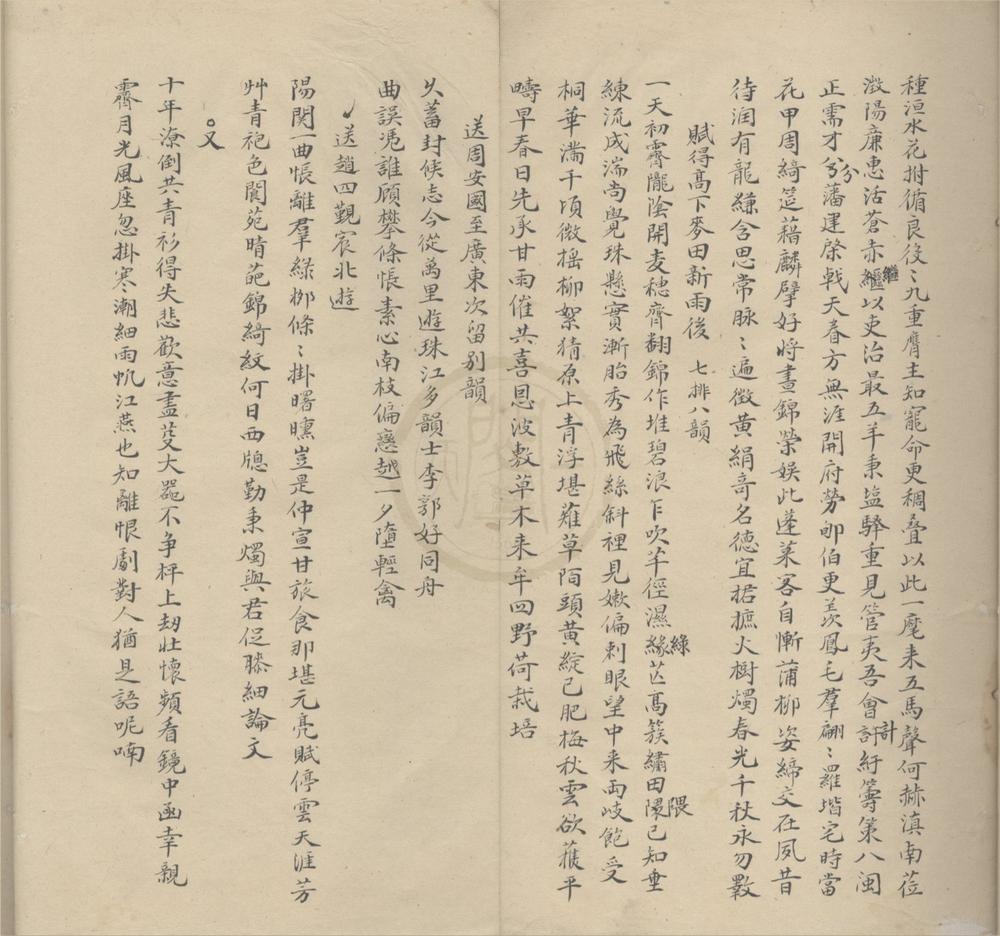 種洹水花拊循良後〻九重膺主知寵命更稠疊以此一麾来五馬聲何赫滇南莅
澂陽廉惠活蒼赤繼以吏治最五羊秉塩驛重見管夷吾會計紆籌第八閩
正需才分藩建棨戟天眷方無涯開府勞郇伯更羨鳳毛羣翩〻羅堦宅時當
花甲周綺筵藉麟擘好將晝錦榮娱此蓬萊客自慚蒲柳姿締交在夙昔
待润有龍縑含思常脉〻遍徴黄絹竒名德宜捃摭火樹燭春光千秋永勿斁
賦得髙下麥田新雨後 七排八韻
一天初霽隴陰開麦穂齊翻錦作堆碧浪乍吹芊徑濕綠芒髙簇繡田隈已知垂
練流成湍尚覺珠懸實漸胎秀為飛絲斜裡見嫩偏刺眼望中来両岐飽受
桐華潃千頃微槝柳絮猜原上青浮堪薙草陌頭黄綻已肥梅秋雲欲蓷平
疇早春日先承甘雨催共喜恩波敷草木来牟四野荷栽培
送周安國至廣東次留别韻
乆蓄封候志今從萬里遊珠江多韻士李郭好同舟
曲誤凴誰顧攀條悵素心南枝偏戀越一夕墮輕禽
送趙四覲宸北遊
陽関一曲悵離羣緑栁條〻掛曙曛豈是仲宣甘旅食那堪元亮賦停雲天涯芳
艸青袍色閬苑晴葩錦綺紋何日西牕勤秉燭與君促膝細論文
又
十年潦倒共青衫得失悲歡意盡芟大噐不争枰上刼壮懷頻看鏡中凾幸親
霽月光風座忽掛寒潮細雨帆江燕也知離恨劇對人猶是語呢喃